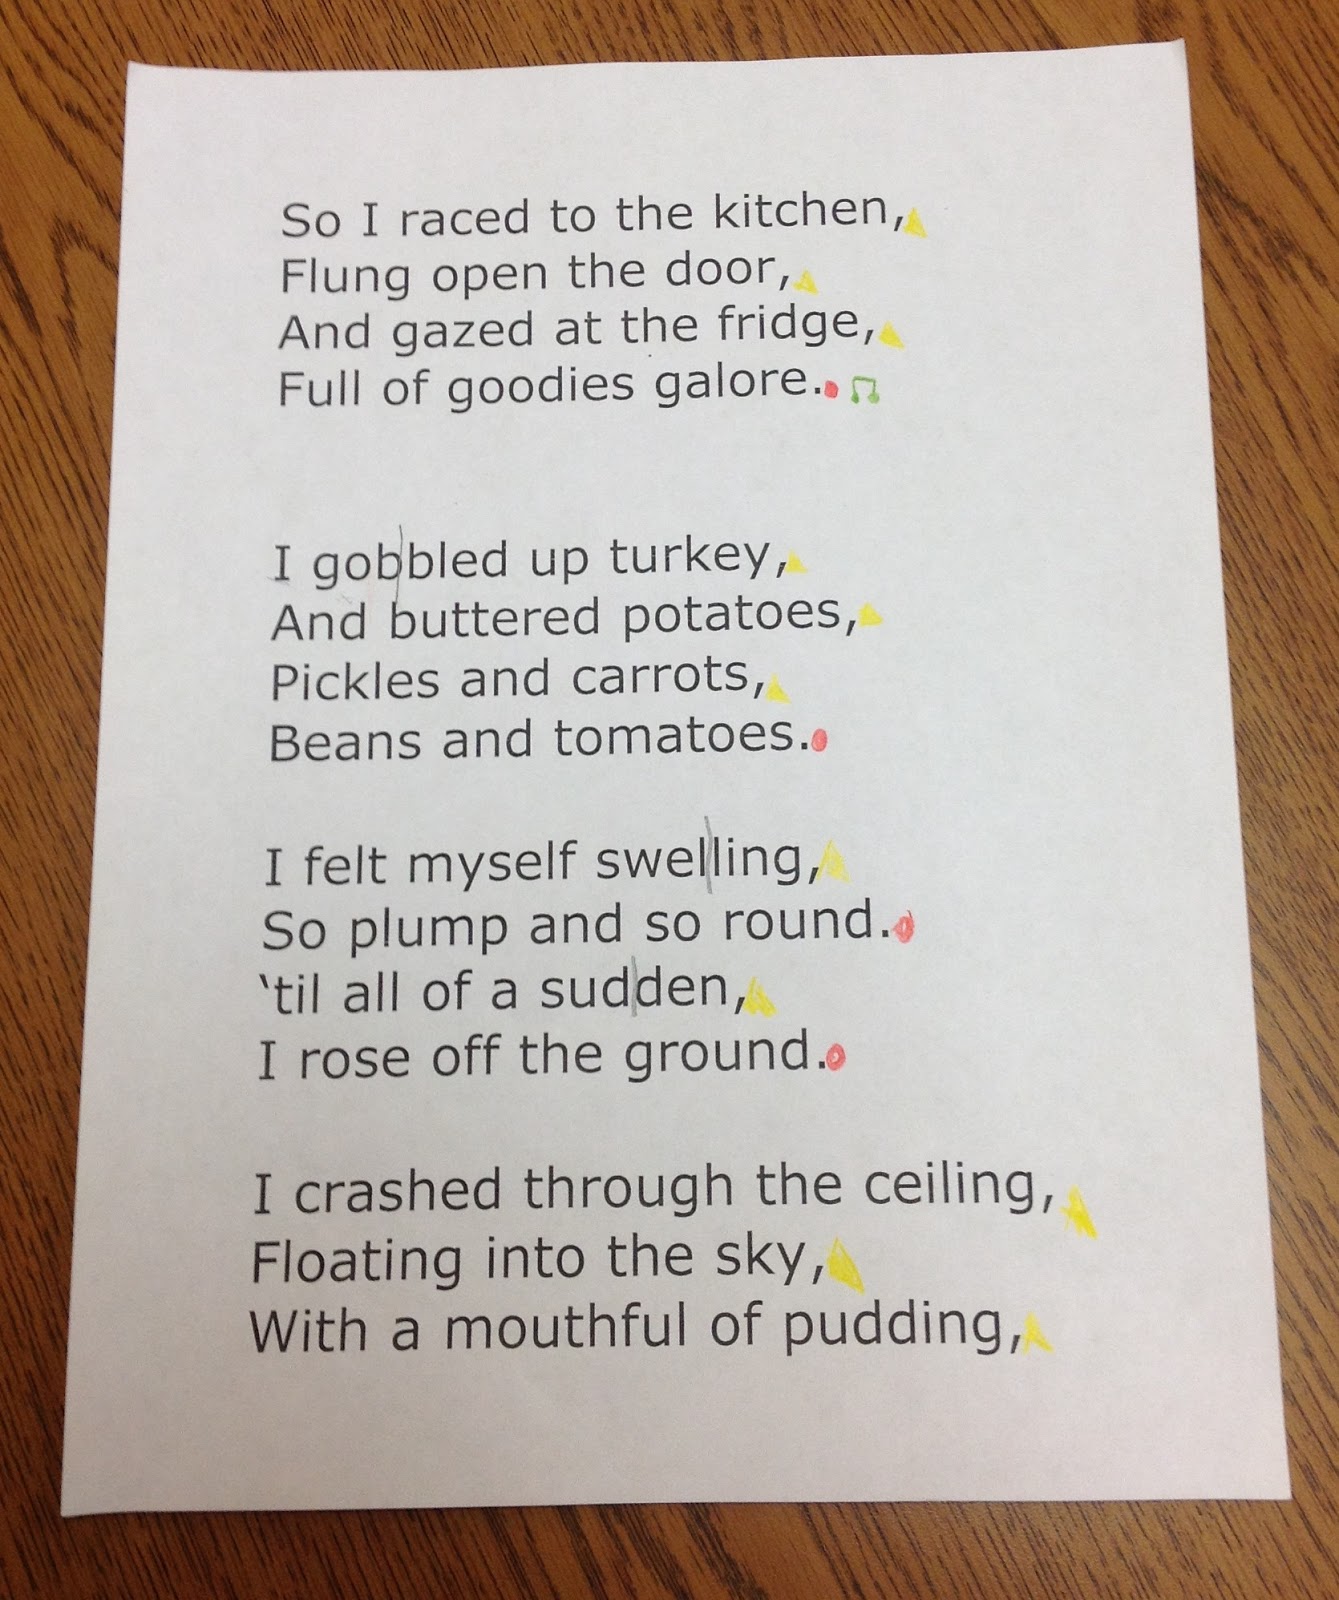 So I raced to the kitchen,
Flung open the door,
And gazed at the fridge,
Full of goodies galore.
I gobbled up turkey,
And buttered potatoes,
Pickles and carrots,
Beans and tomatoes.
I felt myself swelling,
So plump and so round.
‘til all of a sudden,
I rose off the ground.
I crashed through the ceiling,
Floating into the sky,
With a mouthful of pudding,